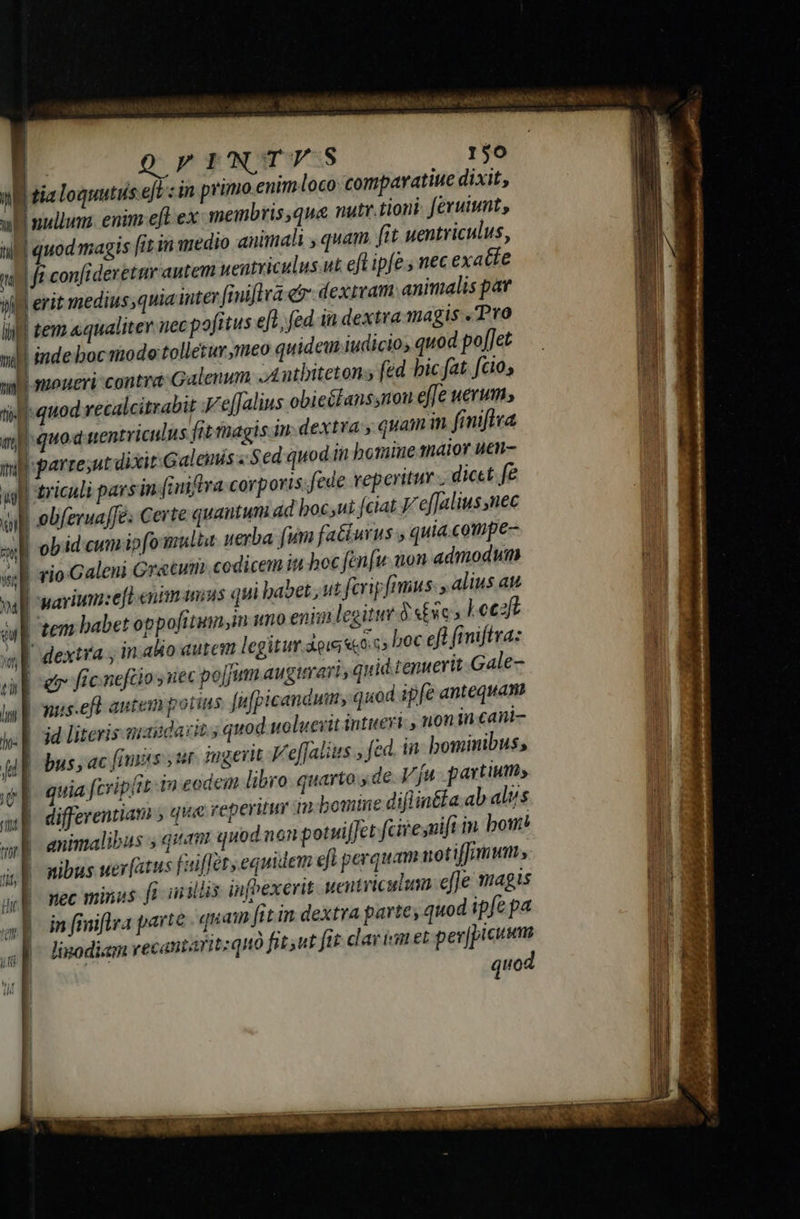 QVINTVS 150
tia loquutus est: in primo enim loco comparatiue dixit,
nullum enim est ex membris, quæ nutritioni seruiunt,
quod magis sit in medio animali, quam sit uentriculus,
si consideretur autem uentriculus ut est ipse, nec exacte
erit medius, quia inter sinistrā & dextram animalis par
tem æqualiter nec positus est, sed in dextra magis. Pro
inde hoc modo tolletur, meo quidem iudicio, quod posset
moueri contra Galenum Antbiteton, sed hic sat scio,
quod recalcitrabit Vessalius obiectans, non esse uerum,
quod uentriculus sit magis in dextra, quam in sinistra
parte, ut dixit Galenus. Sed quod in homine maior uen-
triculi pars in sinistra corporis sede reperitur, dicet se
obseruasse. Certe quantum ad hoc, ut sciat Vessalius, nec
ob id cum ipso multa uerba sum facturus, quia compe-
rio Galeni Græcum codicem in hoc sensu non admodum
uarium: est enim unus qui habet, ut scripsimus, alius au
tem habet oppositum, in uno enim legitur δεξιός, hoc est
dextra, in alio autem legitur ἀριστερός, hoc est sinistra:
& sic nescio, nec possum augurari, quid tenuerit Gale-
nus. est autem potius suspicandum, quod ipse antequam
id literis mandarit, quod uoluerit intueri, non in cani-
bus, ac simijs, ut ingerit Vessalius, sed in hominibus,
quia scripsit in eodem libro quarto, de Vsu partium,
differentiam, quæ reperitur in homine distincta ab alijs
animalibus, quam quod non potuisset scire, nisi in homi
nibus uersatus fuisset, equidem est perquam notissimum,
nec minus si in illis inspexerit uentriculum esse magis
in sinistra parte quam sit in dextra parte, quod ipse pa
linodiam recantarit: quò fit, ut sit clarium et perspicuum
quod